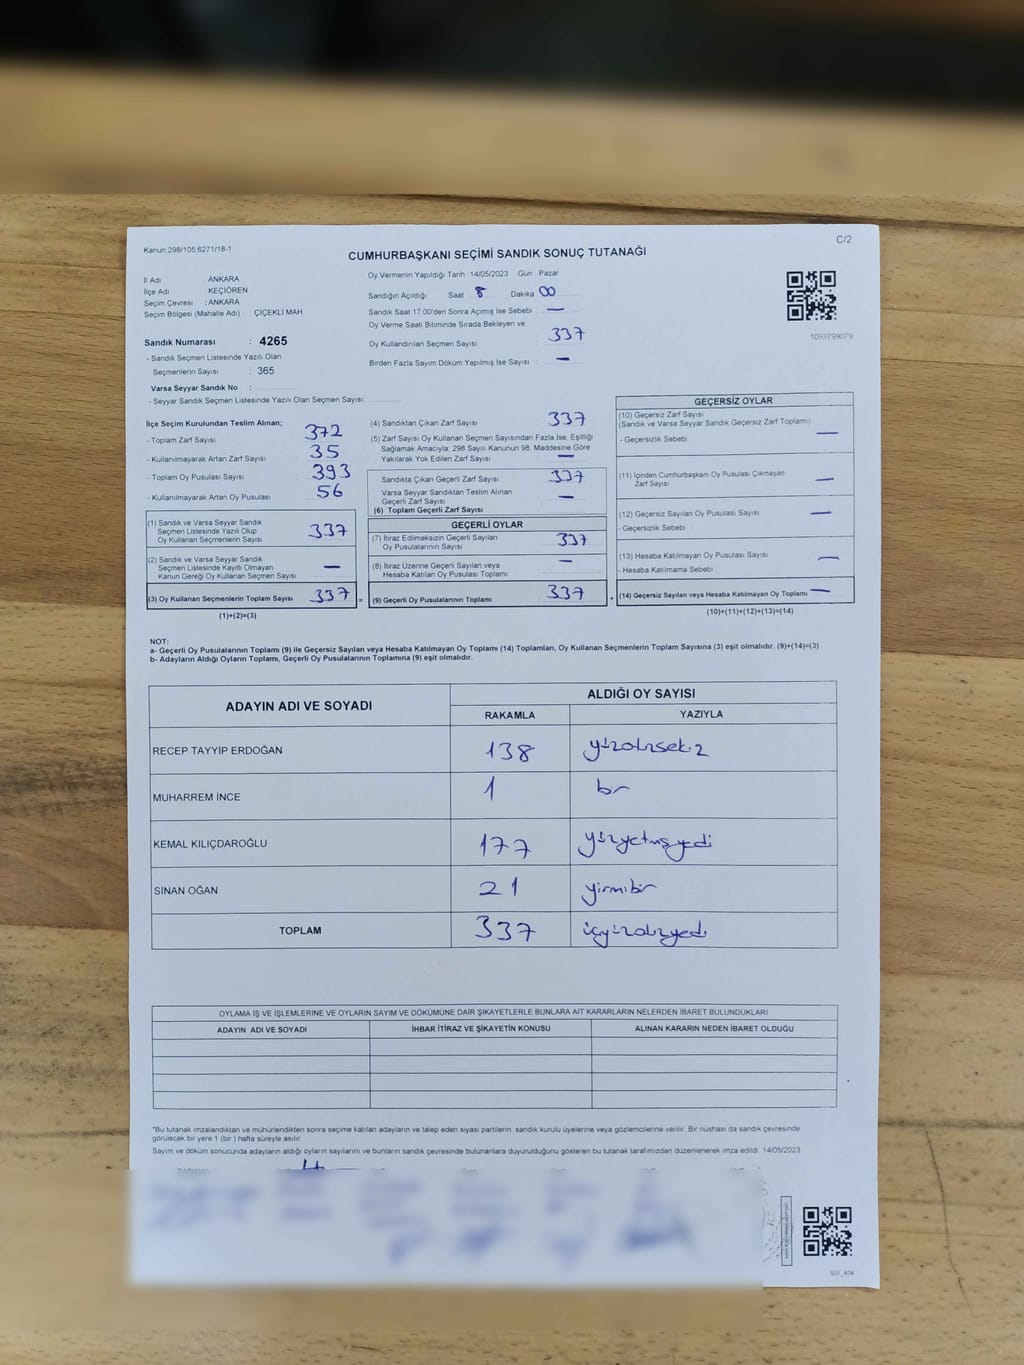 Kanun,298/105,6271/18-1
C/2
CUMHURBAŞKANI SEÇİMİ SANDIK SONUÇ TUTANAĞI
İl Adı ANKARA
İlçe Adı KEÇİÖREN
Seçim Çevresi : ANKARA
Seçim Bölgesi (Mahalle Adı) : ÇİÇEKLİ MAH
Sandık Numarası : 4265
- Sandık Seçmen Listesinde Yazılı Olan
Seçmenlerin Sayısı : 365
Varsa Seyyar Sandık No :
- Seyyar Sandık Seçmen Listesinde Yazılı Olan Seçmen Sayısı:
Oy Vermenin Yapıldığı Tarih :14/05/2023 Gün : Pazar
Sandığın Açıldığı Saat 8 Dakika 00
Sandık Saat 17:00'den Sonra Açımış İse Sebebi : —
Oy Verme Saati Bitiminde Sırada Bekleyen ve
Oy Kullandırılan Seçmen Sayısı : 337
Birden Fazla Sayım Döküm Yapılmış İse Sayısı : —
1093799079
İlçe Seçim Kurulundan Teslim Alınan;
- Toplam Zarf Sayısı : 372
- Kullanılmayarak Artan Zarf Sayısı : 35
- Toplam Oy Pusulası Sayısı : 393
- Kullanılmayarak Artan Oy Pusulası : 56
(1) Sandık ve Varsa Seyyar Sandık
Seçmen Listesinde Yazılı Olup
Oy Kullanan Seçmenlerin Sayısı : 337
(2) Sandık ve Varsa Seyyar Sandık
Seçmen Listesinde Kayıtlı Olmayan
Kanun Gereği Oy Kullanan Seçmen Sayısı : —
(3) Oy Kullanan Seçmenlerin Toplam Sayısı : 337
(1)+(2)=(3)
(4) Sandıktan Çıkan Zarf Sayısı : 337
(5) Zarf Sayısı Oy Kullanan Seçmen Sayısından Fazla İse, Eşitliği
Sağlamak Amacıyla; 298 Sayılı Kanunun 98. Maddesine Göre
Yakılarak Yok Edilen Zarf Sayısı : —
Sandıkta Çıkan Geçerli Zarf Sayısı : 337
Varsa Seyyar Sandıktan Teslim Alınan
Geçerli Zarf Sayısı : —
(6) Toplam Geçerli Zarf Sayısı :
GEÇERLİ OYLAR
(7) İtiraz Edilmeksizin Geçerli Sayılan
Oy Pusulalarının Sayısı : 337
(8) İtiraz Üzerine Geçerli Sayılan veya
Hesaba Katılan Oy Pusulası Toplamı : —
= (9) Geçerli Oy Pusulalarının Toplamı : 337 +
GEÇERSİZ OYLAR
(10) Geçersiz Zarf Sayısı
(Sandık ve Varsa Seyyar Sandık Geçersiz Zarf Toplamı)
- Geçersizlik Sebebi : —
(11) İçinden Cumhurbaşkanı Oy Pusulası Çıkmayan
Zarf Sayısı : —
(12) Geçersiz Sayılan Oy Pusulası Sayısı : —
- Geçersizlik Sebebi :
(13) Hesaba Katılmayan Oy Pusulası Sayısı : —
- Hesaba Katılmama Sebebi :
(14) Geçersiz Sayılan veya Hesaba Katılmayan Oy Toplamı : —
(10)+(11)+(12)+(13)=(14)
NOT:
a- Geçerli Oy Pusulalarının Toplamı (9) ile Geçersiz Sayılan veya Hesaba Katılmayan Oy Toplamı (14) Toplamları, Oy Kullanan Seçmenlerin Toplam Sayısına (3) eşit olmalıdır. (9)+(14)=(3)
b- Adayların Aldığı Oyların Toplamı, Geçerli Oy Pusulalarının Toplamına (9) eşit olmalıdır.
ADAYIN ADI VE SOYADI ALDIĞI OY SAYISI
RAKAMLA YAZIYLA
RECEP TAYYİP ERDOĞAN 138 yüzotuzsekiz
MUHARREM İNCE 1 bir
KEMAL KILIÇDAROĞLU 177 yüzyetmişyedi
SİNAN OĞAN 21 yirmibir
TOPLAM 337 üçyüzotuzyedi
OYLAMA İŞ VE İŞLEMLERİNE VE OYLARIN SAYIM VE DÖKÜMÜNE DAİR ŞİKAYETLERLE BUNLARA AİT KARARLARIN NELERDEN İBARET BULUNDUKLARI
ADAYIN ADI VE SOYADI İHBAR İTİRAZ VE ŞİKAYETİN KONUSU ALINAN KARARIN NEDEN İBARET OLDUĞU
*Bu tutanak imzalandıktan ve mühürlendikten sonra seçime katılan adayların ve talep eden siyasi partilerin sandık kurulu üyelerine veya gözlemcilerine verilir. Bir nüshası da sandık çevresinde
görülecek bir yere 1 (bir ) hafta süreyle asılır.
Sayım ve döküm sonucunda adayların aldığı oyların sayılarını ve bunların sandık çevresinde bulunanlara duyurulduğunu gösteren bu tutanak tarafımızdan düzenlenerek imza edildi. 14/05/2023